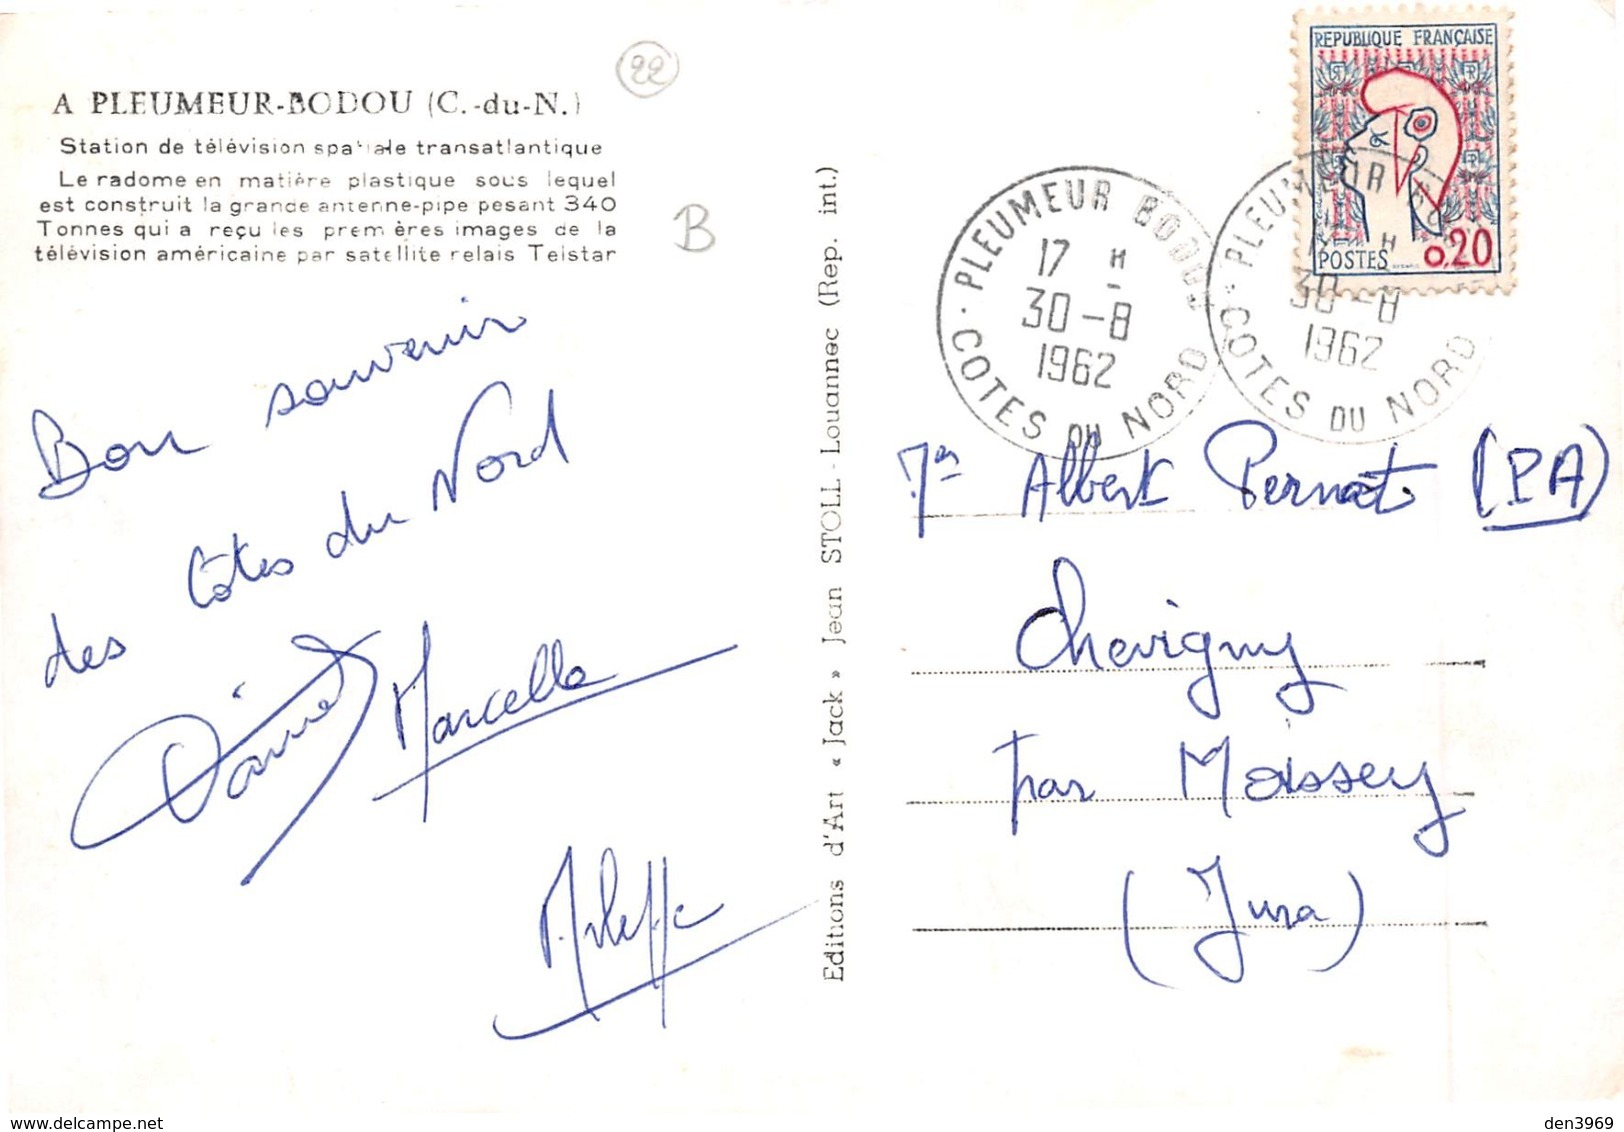 22
A PLEUMEUR-BODOU (C.-du-N.)
Station de télévision spatiale transatlantique
Le radome en matière plastique sous lequel
est construit la grande antenne-pipe pesant 340
Tonnes qui a reçu les premières images de la
télévision américaine par satellite relais Telstar
B
Bon souvenir
des Côtes du Nord
Daniel
Marcelle
Editions d'Art « Jack » Jean STOLL - Louannec (Rep. int.)
REPUBLIQUE FRANÇAISE
POSTES 0,20
PLEUMEUR BODOU
17 H
30-8
1962
COTES DU NORD
PLEUMEUR
H
30-8
1962
COTES DU NORD
Albert Pernot (PA)
Chevigny
par Moissey
(Jura)
den3969